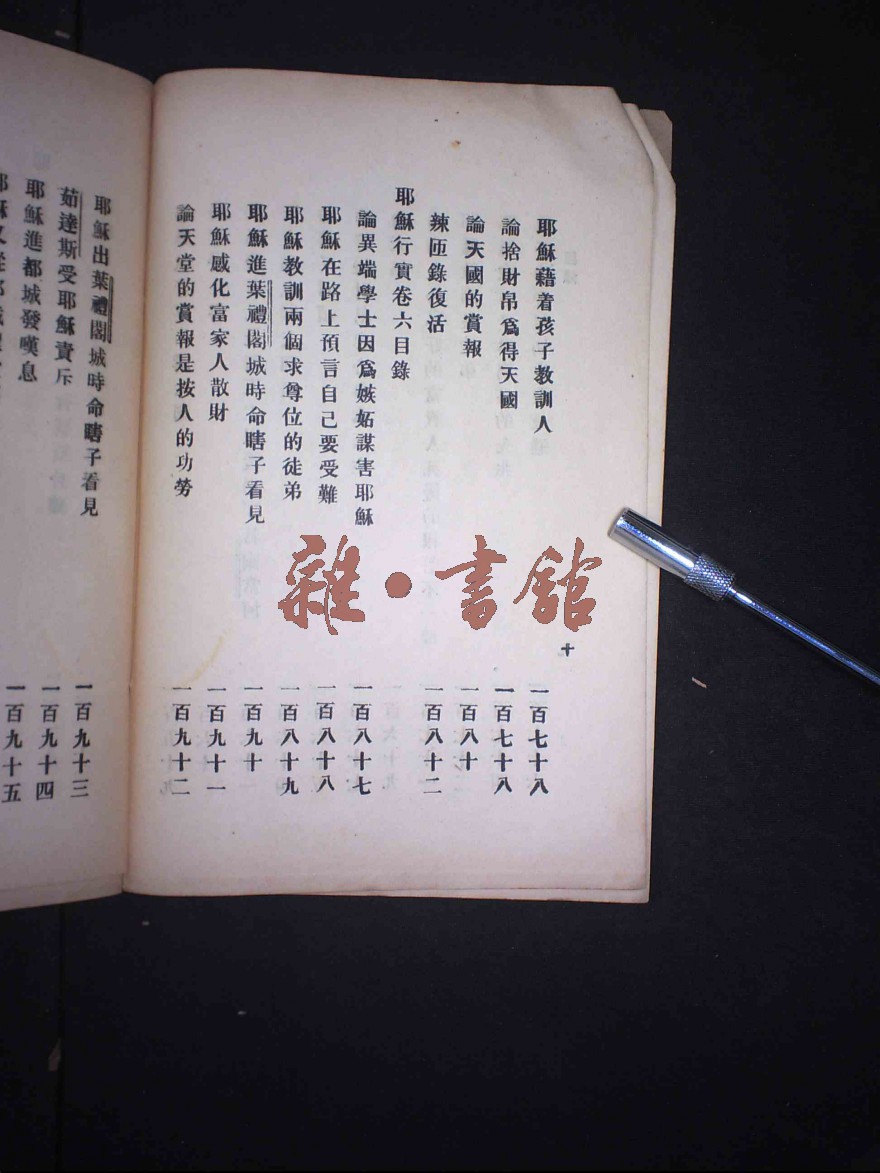 耶穌藉着孩子教訓人 一百七十八
論捨財帛爲得天國 一百七十八
論天國的賞報 一百八十
辣匝錄復活 一百八十二
耶穌行實卷六目錄
論異端學士因爲嫉妬謀害耶穌 一百八十七
耶穌在路上預言自己要受難 一百八十八
耶穌教訓兩個求尊位的徒弟 一百八十九
耶穌進葉禮閣城時命瞎子看見 一百九十
耶穌感化富家人散財 一百九十一
論天堂的賞報是按人的功勞 一百九十二
十
耶穌出葉禮閣城時命瞎子看見 一百九十三
茹達斯受耶穌責斥 一百九十四
耶穌進都城發嘆息 一百九十五
雜·書館